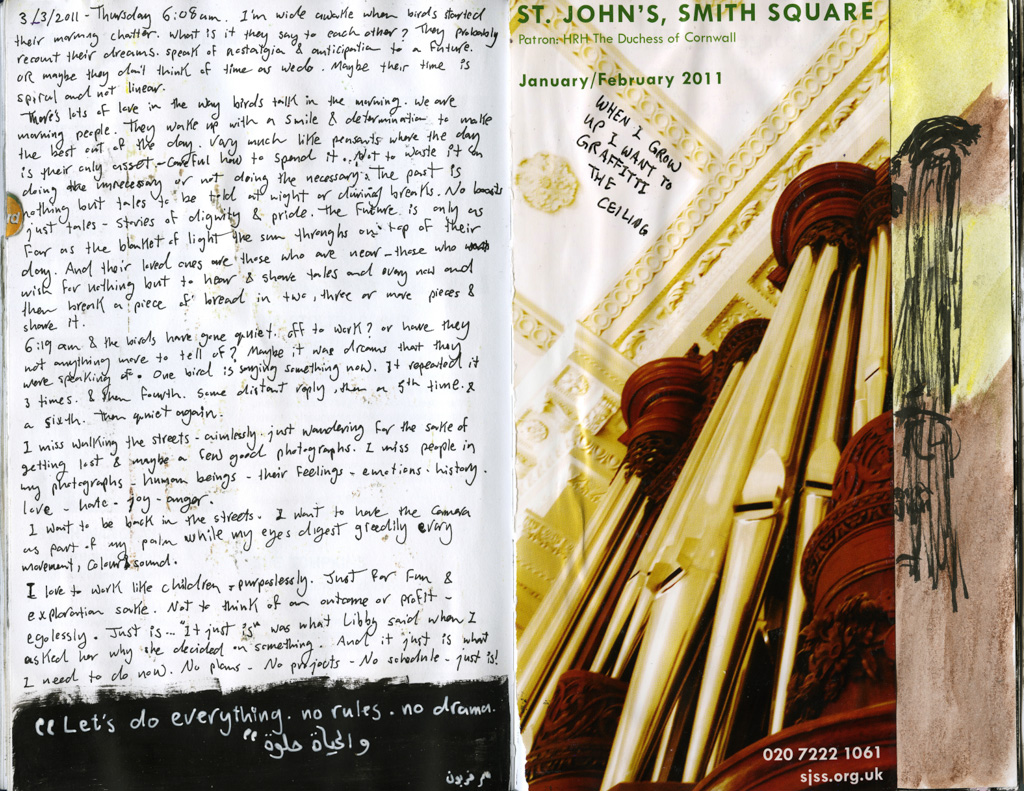 3/3/2011 - Thursday 6:08am. I'm wide awake when birds started
their morning chatter. What is it they say to each other? They probably
recount their dreams. speak of nostalgia & anticipation to a future.
OR maybe they don't think of time as we do. Maybe their time is
spiral and not linear.
There's lots of love in the way birds talk in the morning. We are
morning people. They wake up with a smile & determination to make
the best out of the day. Very much like peasants where the day
is their only asset - careful how to spend it... Not to waste it on
doing the unnecessary or not doing the necessary. The past is
nothing but tales to be told at night or during breaks. No
just tales - stories of dignity & pride. The future is only as
far as the blanket of light the sun throughs on top of their
day. And their loved ones are those who are near - those who
wish for nothing but to hear & share tales and every now and
then break a piece of bread in two, three or more pieces &
share it.
6:19 am & the birds have gone quiet. off to work? or have they
not anything more to tell of? Maybe it was dreams that they
were speaking of. One bird is saying something now. It repeated it
3 times. & then fourth. Some distant reply, then a 5th time. &
a sixth. Then quiet again.
I miss walking the streets - aimlessly. just wandering for the sake of
getting lost & maybe a few good photographs. I miss people in
my photographs - human beings - their feelings - emotions - history.
love - hate - joy - anger.
I want to be back in the streets. I want to have the camera
as part of my palm while my eyes digest greedily every
movement, colour & sound.
I love to work like children - purpaslessly. Just for fun &
exploration sake. Not to think of an outcome or profit -
egolessly. Just is... "It just is" was what Libby said when I
asked her why she decided on something. And it just is what
I need to do now. No plans - No projects - No schedule - just is!
"Let's do everything. no rules. no drama.
والحياة حلوة"
ST. JOHN'S, SMITH SQUARE
Patron: HRH The Duchess of Cornwall
January/February 2011
WHEN I GROW
UP I WANT TO
GRAFFITTI
THE
CEILING
020 7222 1061
sjss.org.uk